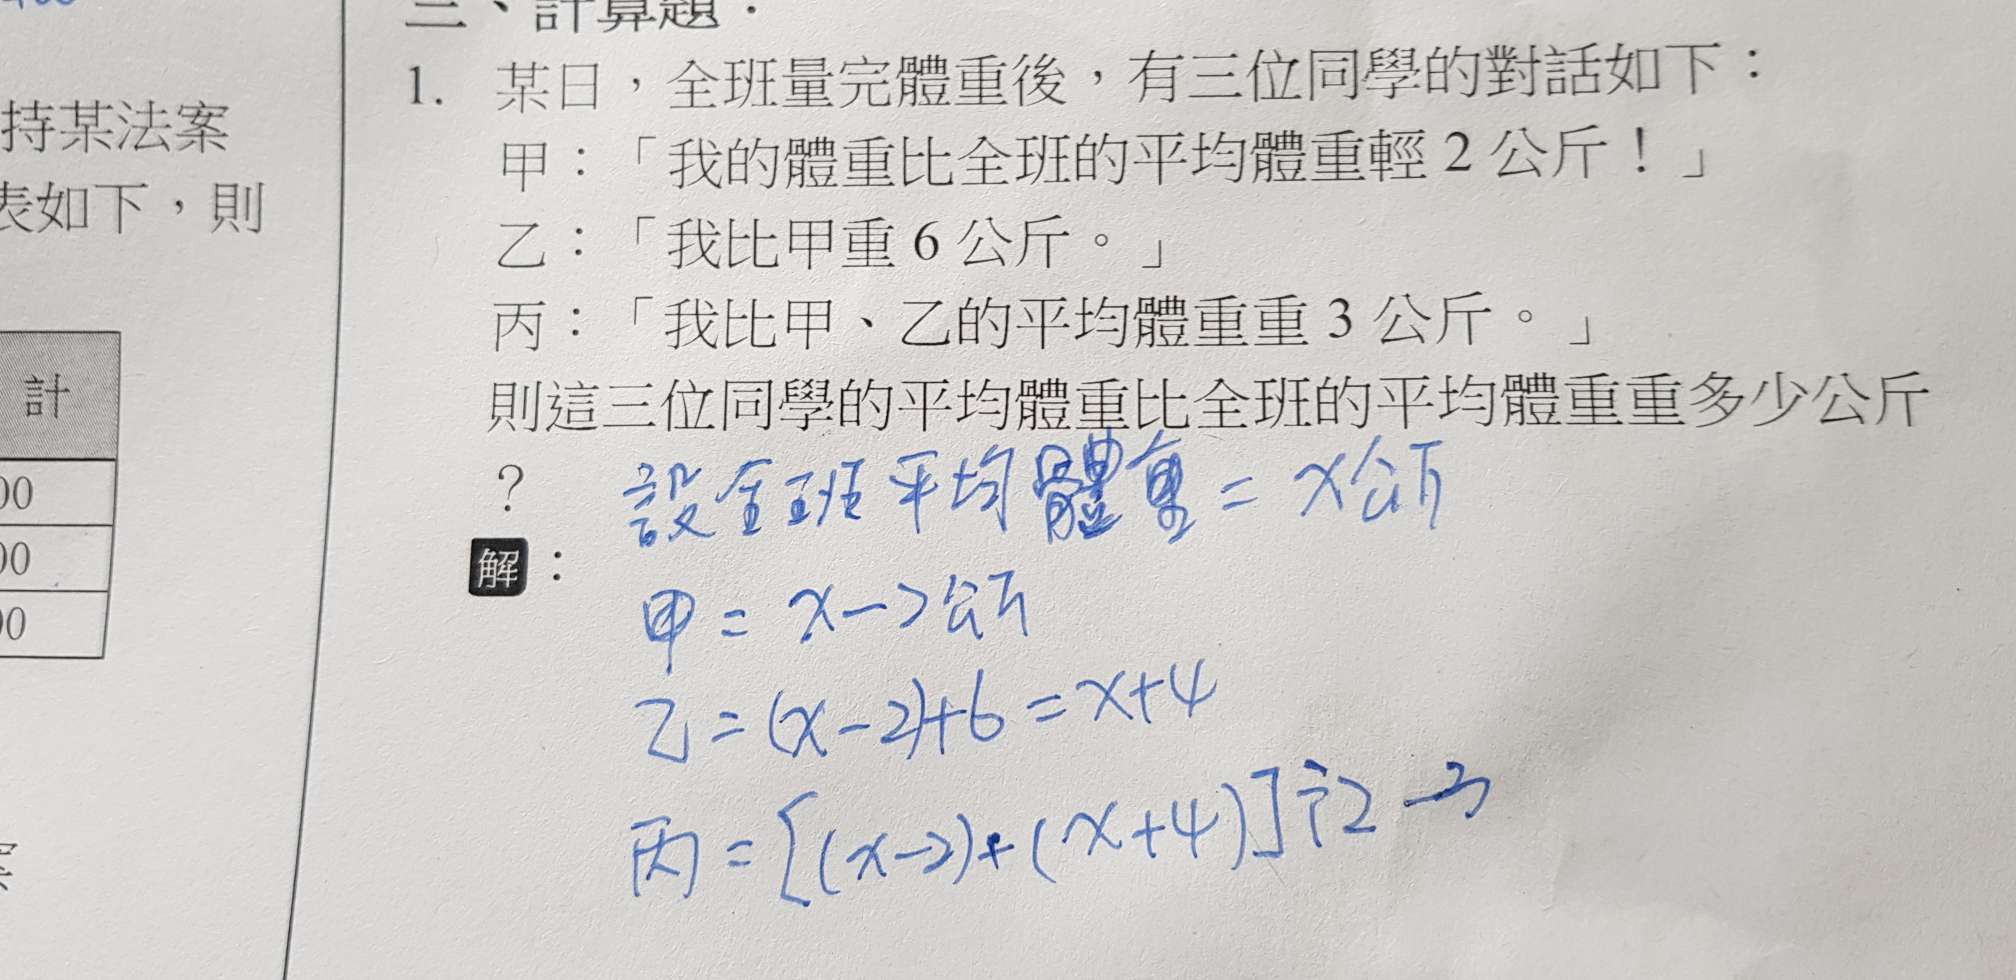 三、計算題：
1. 某日，全班量完體重後，有三位同學的對話如下：
甲：「我的體重比全班的平均體重輕 2 公斤！」
乙：「我比甲重 6 公斤。」
丙：「我比甲、乙的平均體重重 3 公斤。」
則這三位同學的平均體重比全班的平均體重重多少公斤
？
設全班平均體重 = x公斤
解：
甲 = x-2公斤
乙 = (x-2)+6 = x+4
丙 = [(x-2)+(x+4)]÷2-3
持某法案
表如下，則
計
00
00
00